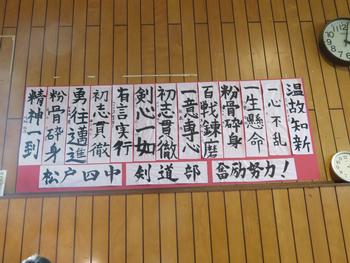 温故知新
一心不乱
一生懸命
粉骨砕身
百戦錬磨
一意専心
初志貫徹
剣心一如
有言実行
初志貫徹
勇往邁進
粉骨砕身
精神一到
松戸四中 剣道部 奮励努力！